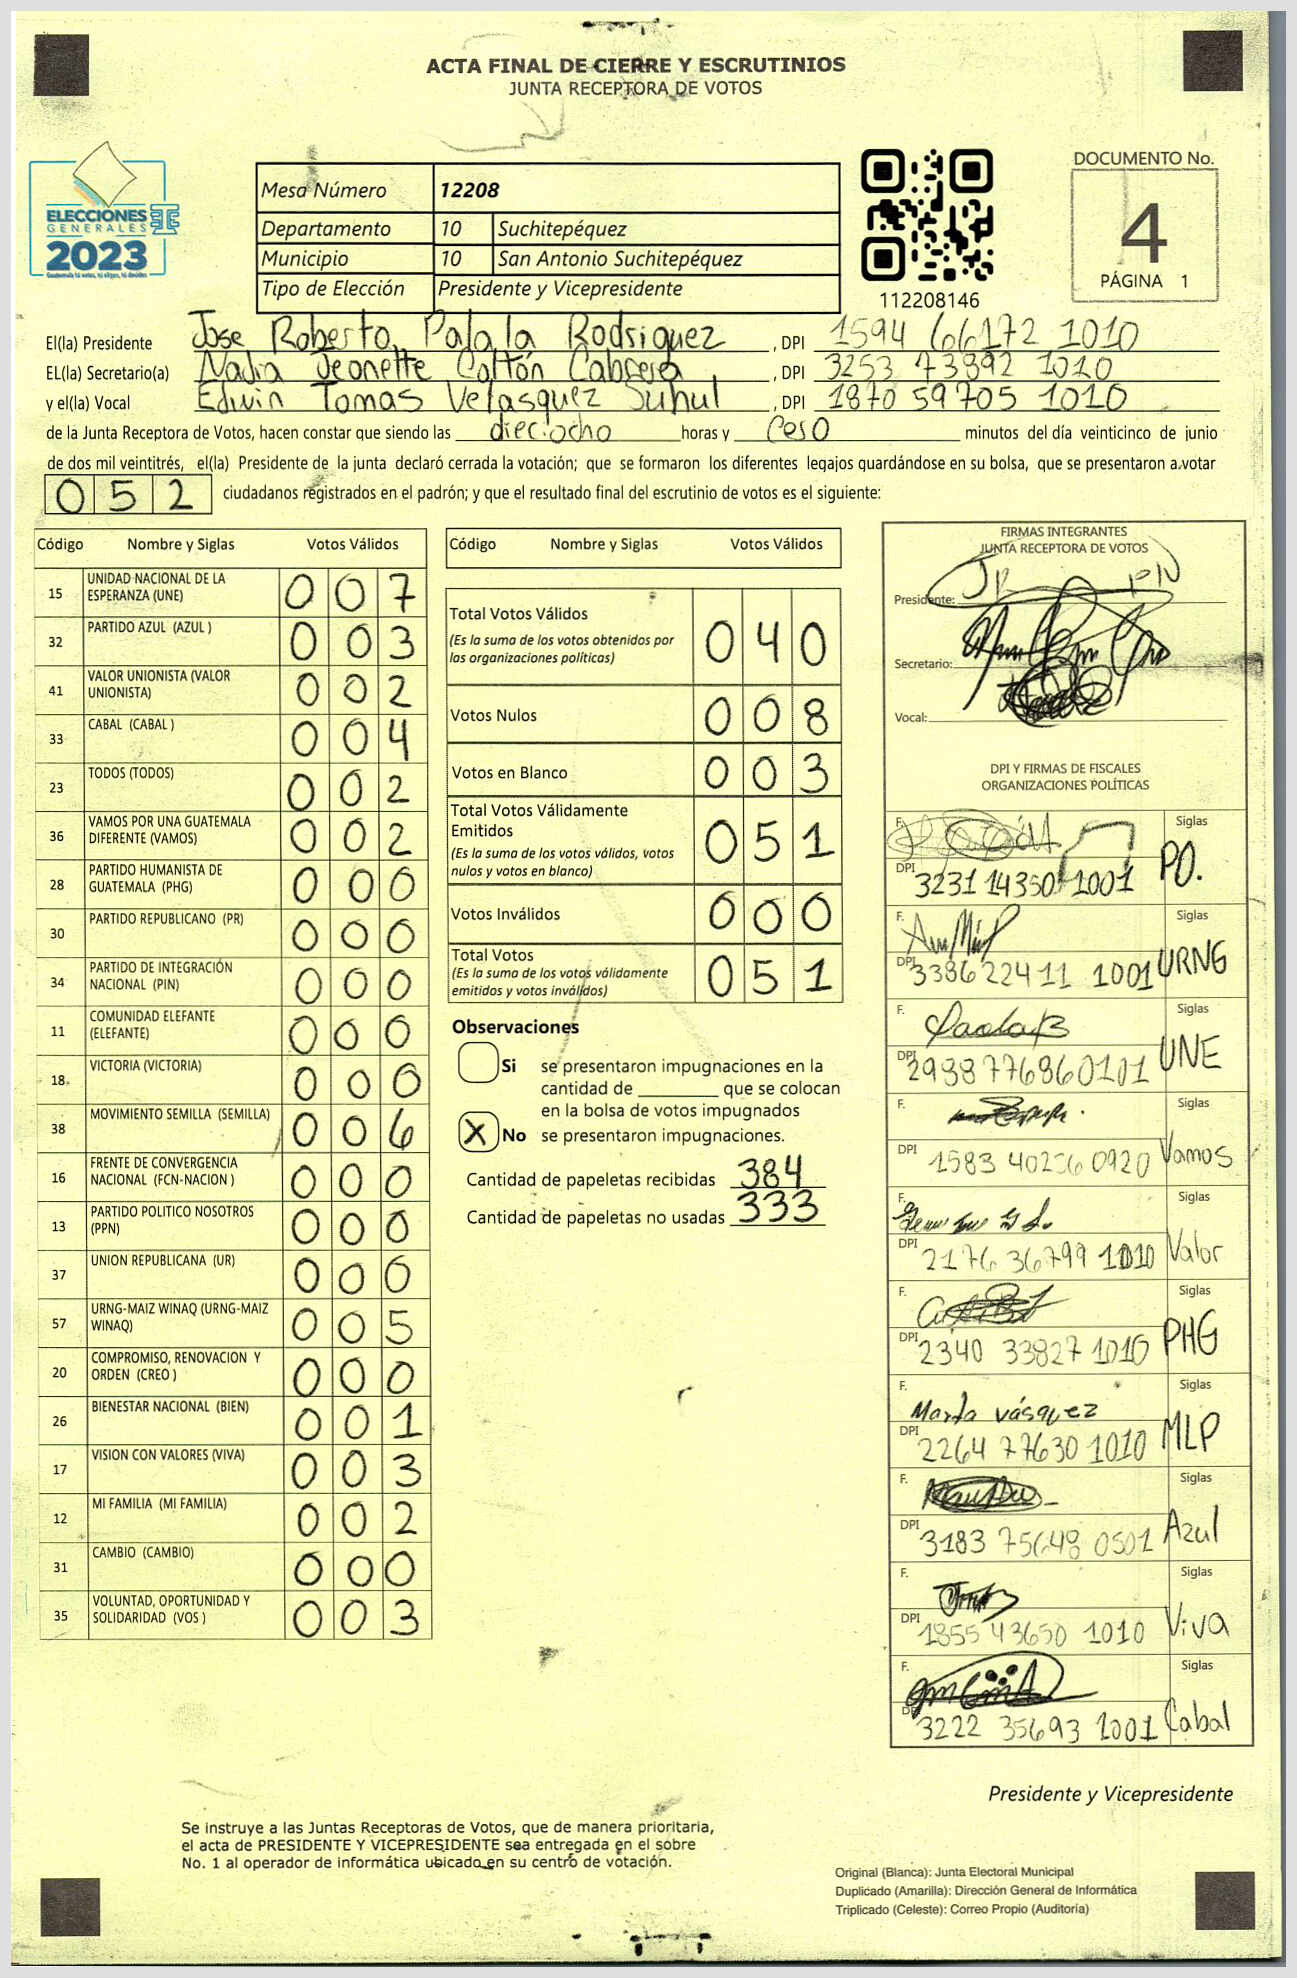 ACTA FINAL DE CIERRE Y ESCRUTINIOS
JUNTA RECEPTORA DE VOTOS
ELECCIONES
GENERALES
2023
Guatemala tú votas, tú eliges, tú decides
Mesa Número 12208
Departamento 10 Suchitepéquez
Municipio 10 San Antonio Suchitepéquez
Tipo de Elección Presidente y Vicepresidente
112208146
DOCUMENTO No.
4
PÁGINA 1
El(la) Presidente Jose Roberto Palala Rodriguez, DPI 1594 66172 1010
EL(la) Secretario(a) Nadia Jeonette Cottón Cabrera, DPI 3253 73892 1010
y el(la) Vocal Edwin Tomas Velasquez Suhul, DPI 1870 59705 1010
de la Junta Receptora de Votos, hacen constar que siendo las dieciocho horas y cero minutos del día veinticinco de junio
de dos mil veintitrés, el(la) Presidente de la junta declaró cerrada la votación; que se formaron los diferentes legajos quardándose en su bolsa, que se presentaron a votar
052 ciudadanos registrados en el padrón; y que el resultado final del escrutinio de votos es el siguiente:
Código Nombre y Siglas Votos Válidos
15 UNIDAD NACIONAL DE LA ESPERANZA (UNE) 007
32 PARTIDO AZUL (AZUL ) 003
41 VALOR UNIONISTA (VALOR UNIONISTA) 002
33 CABAL (CABAL ) 004
23 TODOS (TODOS) 002
36 VAMOS POR UNA GUATEMALA DIFERENTE (VAMOS) 002
28 PARTIDO HUMANISTA DE GUATEMALA (PHG) 000
30 PARTIDO REPUBLICANO (PR) 000
34 PARTIDO DE INTEGRACIÓN NACIONAL (PIN) 000
11 COMUNIDAD ELEFANTE (ELEFANTE) 000
18 VICTORIA (VICTORIA) 000
38 MOVIMIENTO SEMILLA (SEMILLA) 006
16 FRENTE DE CONVERGENCIA NACIONAL (FCN-NACION ) 000
13 PARTIDO POLITICO NOSOTROS (PPN) 000
37 UNION REPUBLICANA (UR) 000
57 URNG-MAIZ WINAQ (URNG-MAIZ WINAQ) 005
20 COMPROMISO, RENOVACION Y ORDEN (CREO ) 000
26 BIENESTAR NACIONAL (BIEN) 001
17 VISION CON VALORES (VIVA) 003
12 MI FAMILIA (MI FAMILIA) 002
31 CAMBIO (CAMBIO) 000
35 VOLUNTAD, OPORTUNIDAD Y SOLIDARIDAD (VOS ) 003
Código Nombre y Siglas Votos Válidos
Total Votos Válidos 040
(Es la suma de los votos obtenidos por
las organizaciones políticas)
Votos Nulos 008
Votos en Blanco 003
Total Votos Válidamente
Emitidos 051
(Es la suma de los votos válidos, votos
nulos y votos en blanco)
Votos Inválidos 000
Total Votos 051
(Es la suma de los votos válidamente
emitidos y votos inválidos)
Observaciones
Si se presentaron impugnaciones en la
cantidad de ________ que se colocan
en la bolsa de votos impugnados
X No se presentaron impugnaciones.
Cantidad de papeletas recibidas 384
Cantidad de papeletas no usadas 333
FIRMAS INTEGRANTES
JUNTA RECEPTORA DE VOTOS
Presidente:
Secretario:
Vocal:
DPI Y FIRMAS DE FISCALES
ORGANIZACIONES POLÍTICAS
F. Siglas
DPI 3231 14350 1001 PO.
F. Siglas
DPI 3386 22411 1001 URNG
F. Siglas
DPI 2938776860101 UNE
F. Siglas
DPI 1583 40256 0920 Vamos
F. Siglas
DPI 2176 36799 1010 Valor
F. Siglas
DPI 2340 33827 1010 PHG
F. Marta vásquez Siglas
DPI 2264 77630 1010 MLP
F. Siglas
DPI 3183 75648 0501 Azul
F. Siglas
DPI 1855 43650 1010 Viva
F. Siglas
DPI 3222 35693 1001 Cabal
Presidente y Vicepresidente
Se instruye a las Juntas Receptoras de Votos, que de manera prioritaria,
el acta de PRESIDENTE Y VICEPRESIDENTE sea entregada en el sobre
No. 1 al operador de informática ubicado en su centro de votación.
Original (Blanca): Junta Electoral Municipal
Duplicado (Amarilla): Dirección General de Informática
Triplicado (Celeste): Correo Propio (Auditoría)